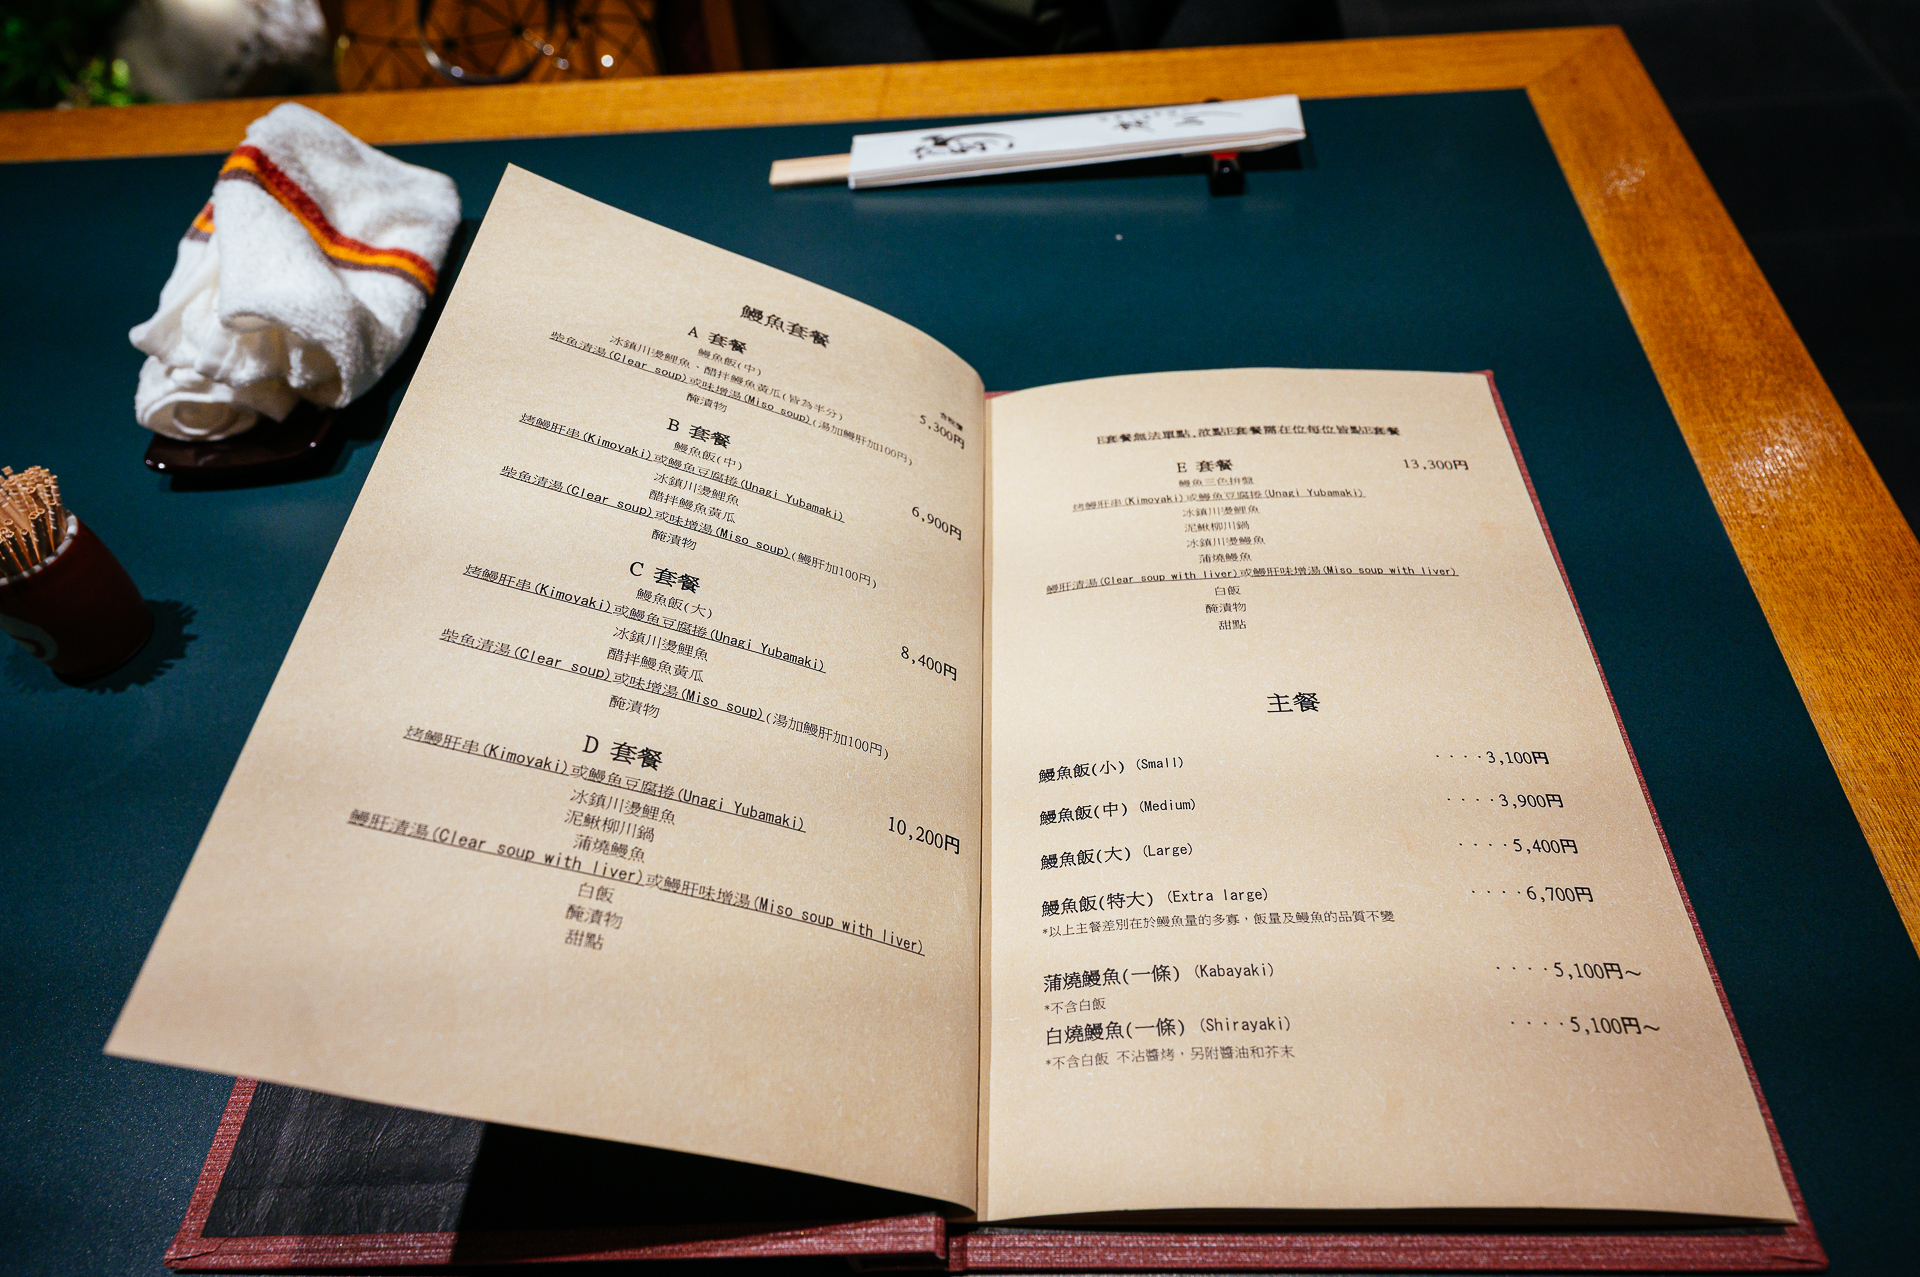 鰻魚套餐
A 套餐
鰻魚飯(中)
冰鎮川燙鯉魚、醋拌鰻魚黃瓜(皆為半分)
柴魚清湯(Clear soup)或味增湯(Miso soup)(湯加鰻肝加100円)
醃漬物
5,300円
B 套餐
鰻魚飯(中)
烤鰻肝串(Kimoyaki)或鰻魚豆腐捲(Unagi Yubamaki)
冰鎮川燙鯉魚
醋拌鰻魚黃瓜
6,900円
柴魚清湯(Clear soup)或味增湯(Miso soup)(鰻肝加100円)
醃漬物
C 套餐
鰻魚飯(大)
烤鰻肝串(Kimoyaki)或鰻魚豆腐捲(Unagi Yubamaki)
冰鎮川燙鯉魚
醋拌鰻魚黃瓜
8,400円
柴魚清湯(Clear soup)或味增湯(Miso soup)(湯加鰻肝加100円)
醃漬物
D 套餐
烤鰻肝串(Kimoyaki)或鰻魚豆腐捲(Unagi Yubamaki)
冰鎮川燙鯉魚
泥鰍柳川鍋
蒲燒鰻魚
10,200円
鰻肝清湯(Clear soup with liver)或鰻肝味增湯(Miso soup with liver)
白飯
醃漬物
甜點
E套餐無法單點,故點E套餐需在位每位皆點E套餐
E 套餐 13,300円
鰻魚三色拼盤
烤鰻肝串(Kimoyaki)或鰻魚豆腐捲(Unagi Yubamaki)
冰鎮川燙鯉魚
泥鰍柳川鍋
冰鎮川燙鰻魚
蒲燒鰻魚
鰻肝清湯(Clear soup with liver)或鰻肝味增湯(Miso soup with liver)
白飯
醃漬物
甜點
主餐
鰻魚飯(小) (Small) ····3,100円
鰻魚飯(中) (Medium) ····3,900円
鰻魚飯(大) (Large) ····5,400円
鰻魚飯(特大) (Extra large) ····6,700円
*以上主餐差別在於鰻魚量的多寡，飯量及鰻魚的品質不變
蒲燒鰻魚(一條) (Kabayaki) ····5,100円～
*不含白飯
白燒鰻魚(一條) (Shirayaki) ····5,100円～
*不含白飯 不沾醬烤，另附醬油和芥末